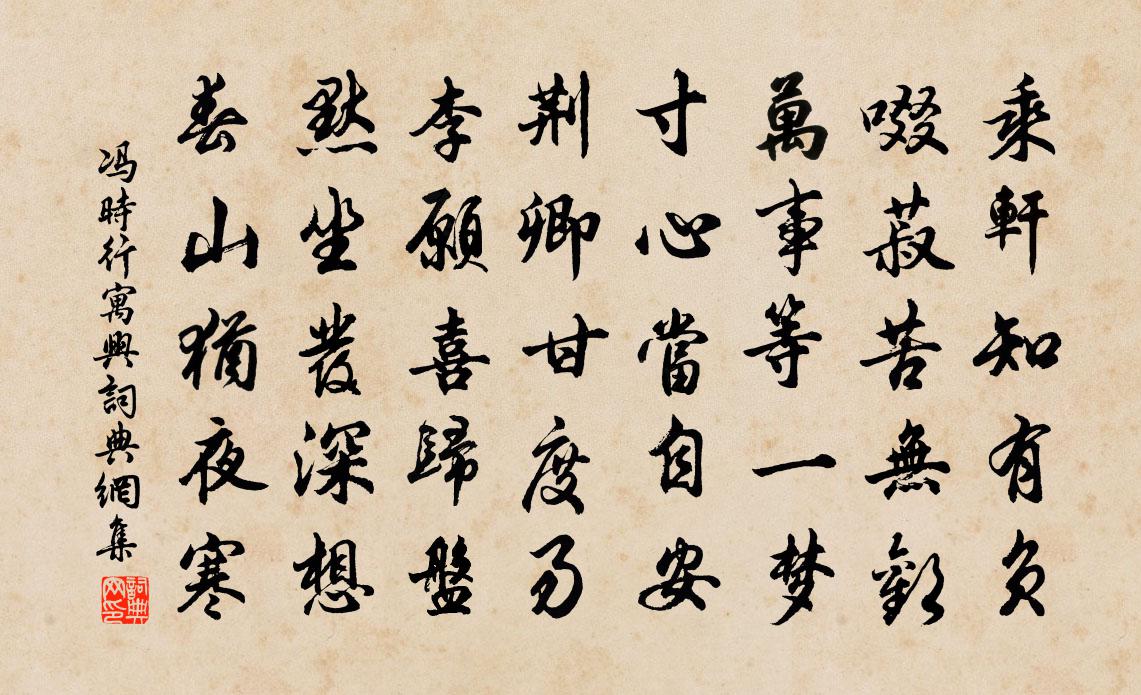 乘軒知有負
啜菽苦無歡
萬事等一梦
寸心當自安
荆卿甘度易
李願喜歸盤
默坐發深想
春山猶夜寒
冯時行寓興詞典網集
詞典网印